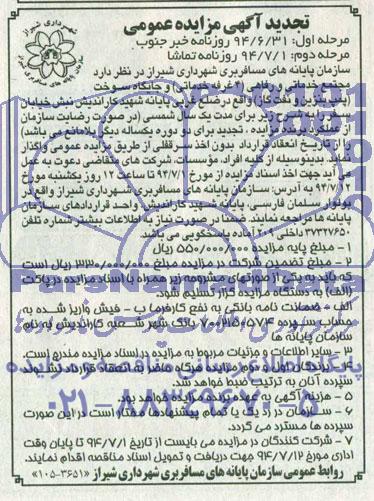 تجدید آگهی مزایده عمومی
شهرداری شیراز
سازمان پایانه های مسافربری شیراز
مرحله اول: ۹۴/۶/۳۱ روزنامه خبر جنوب
مرحله دوم: ۹۴/۷/۱ روزنامه تماشا
سازمان پایانه های مسافربری شهرداری شیراز در نظر دارد
مجتمع خدماتی و رفاهی (غرفه خدماتی) و جایگاه سوخت
(پمپ بنزین و نفت گاز) واقع در ضلع غربی پایانه شهید کاراندیش نبش خیابان
را برای مدت یک سال شمسی (در صورت رضایت سازمان
از عملکرد برنده مزایده ، تجدید برای دو دوره یکساله دیگر بلامانع می باشد)
را از تاریخ انعقاد قرارداد بدون اخذ سرقفلی از طریق مزایده عمومی واگذار
نماید. بدینوسیله از کلیه افراد، مؤسسات، شرکت های متقاضی دعوت به عمل
می آید جهت اخذ اسناد مزایده از مورخ ۹۴/۷/۱ تا ساعت ۱۲ روز یکشنبه مورخ
۹۴/۷/۱۲ به آدرس: سازمان پایانه های مسافربری شهرداری شیراز واقع در
بولوار سلمان فارسی، پایانه شهید کاراندیش واحد قراردادهای سازمان
پایانه ها مراجعه نمایند. ضمنا در صورت نیاز به اطلاعات بیشتر شماره تلفن
۳۷۳۲۷۶۵۰ داخلی ۲۰۹ آماده پاسخگویی می باشد.
۱ – مبلغ پایه مزایده ۵۵۰/۰۰۰/۰۰۰ ریال
۲ – مبلغ تضمین شرکت در مزایده مبلغ ۳۳۰/۰۰۰/۰۰۰ ریال است
که باید به یکی از صورتهای مشروحه زیر همراه با اسناد مزایده در پاکت
(الف) به دستگاه مزایده گزار تسلیم شود.
الف – ضمانت نامه بانکی به نفع کارفرما ب – فیش واریز شده به
حساب سپرده بانک شهر شعبه کاراندیش به نام
سازمان پایانه ها
۳ – سایر اطلاعات و جزئیات مربوط به مزایده در اسناد مزایده مندرج است.
۴ – برندگان اول و دوم مزایده هرگاه حاضر به انعقاد قرارداد نشوند
سپرده آنان به ترتیب ضبط خواهد شد.
۵ – هزینه آگهی به عهده برنده مزایده خواهد بود.
۶ – سازمان در رد یک یا تمام پیشنهادها مختار است در این صورت
سپرده ها مسترد می گردد.
۷ – شرکت کنندگان در مزایده می بایست از تاریخ ۹۴/۷/۱ تا پایان وقت
اداری مورخ ۹۴/۷/۱۲ جهت دریافت و تحویل اسناد مناقصه اقدام نمایند.
روابط عمومی سازمان پایانه های مسافربری شهرداری شیراز «۳۶۵۱-۱۰۵»
۰۲۱-۸۸۳۴۹۶۷۰-۵